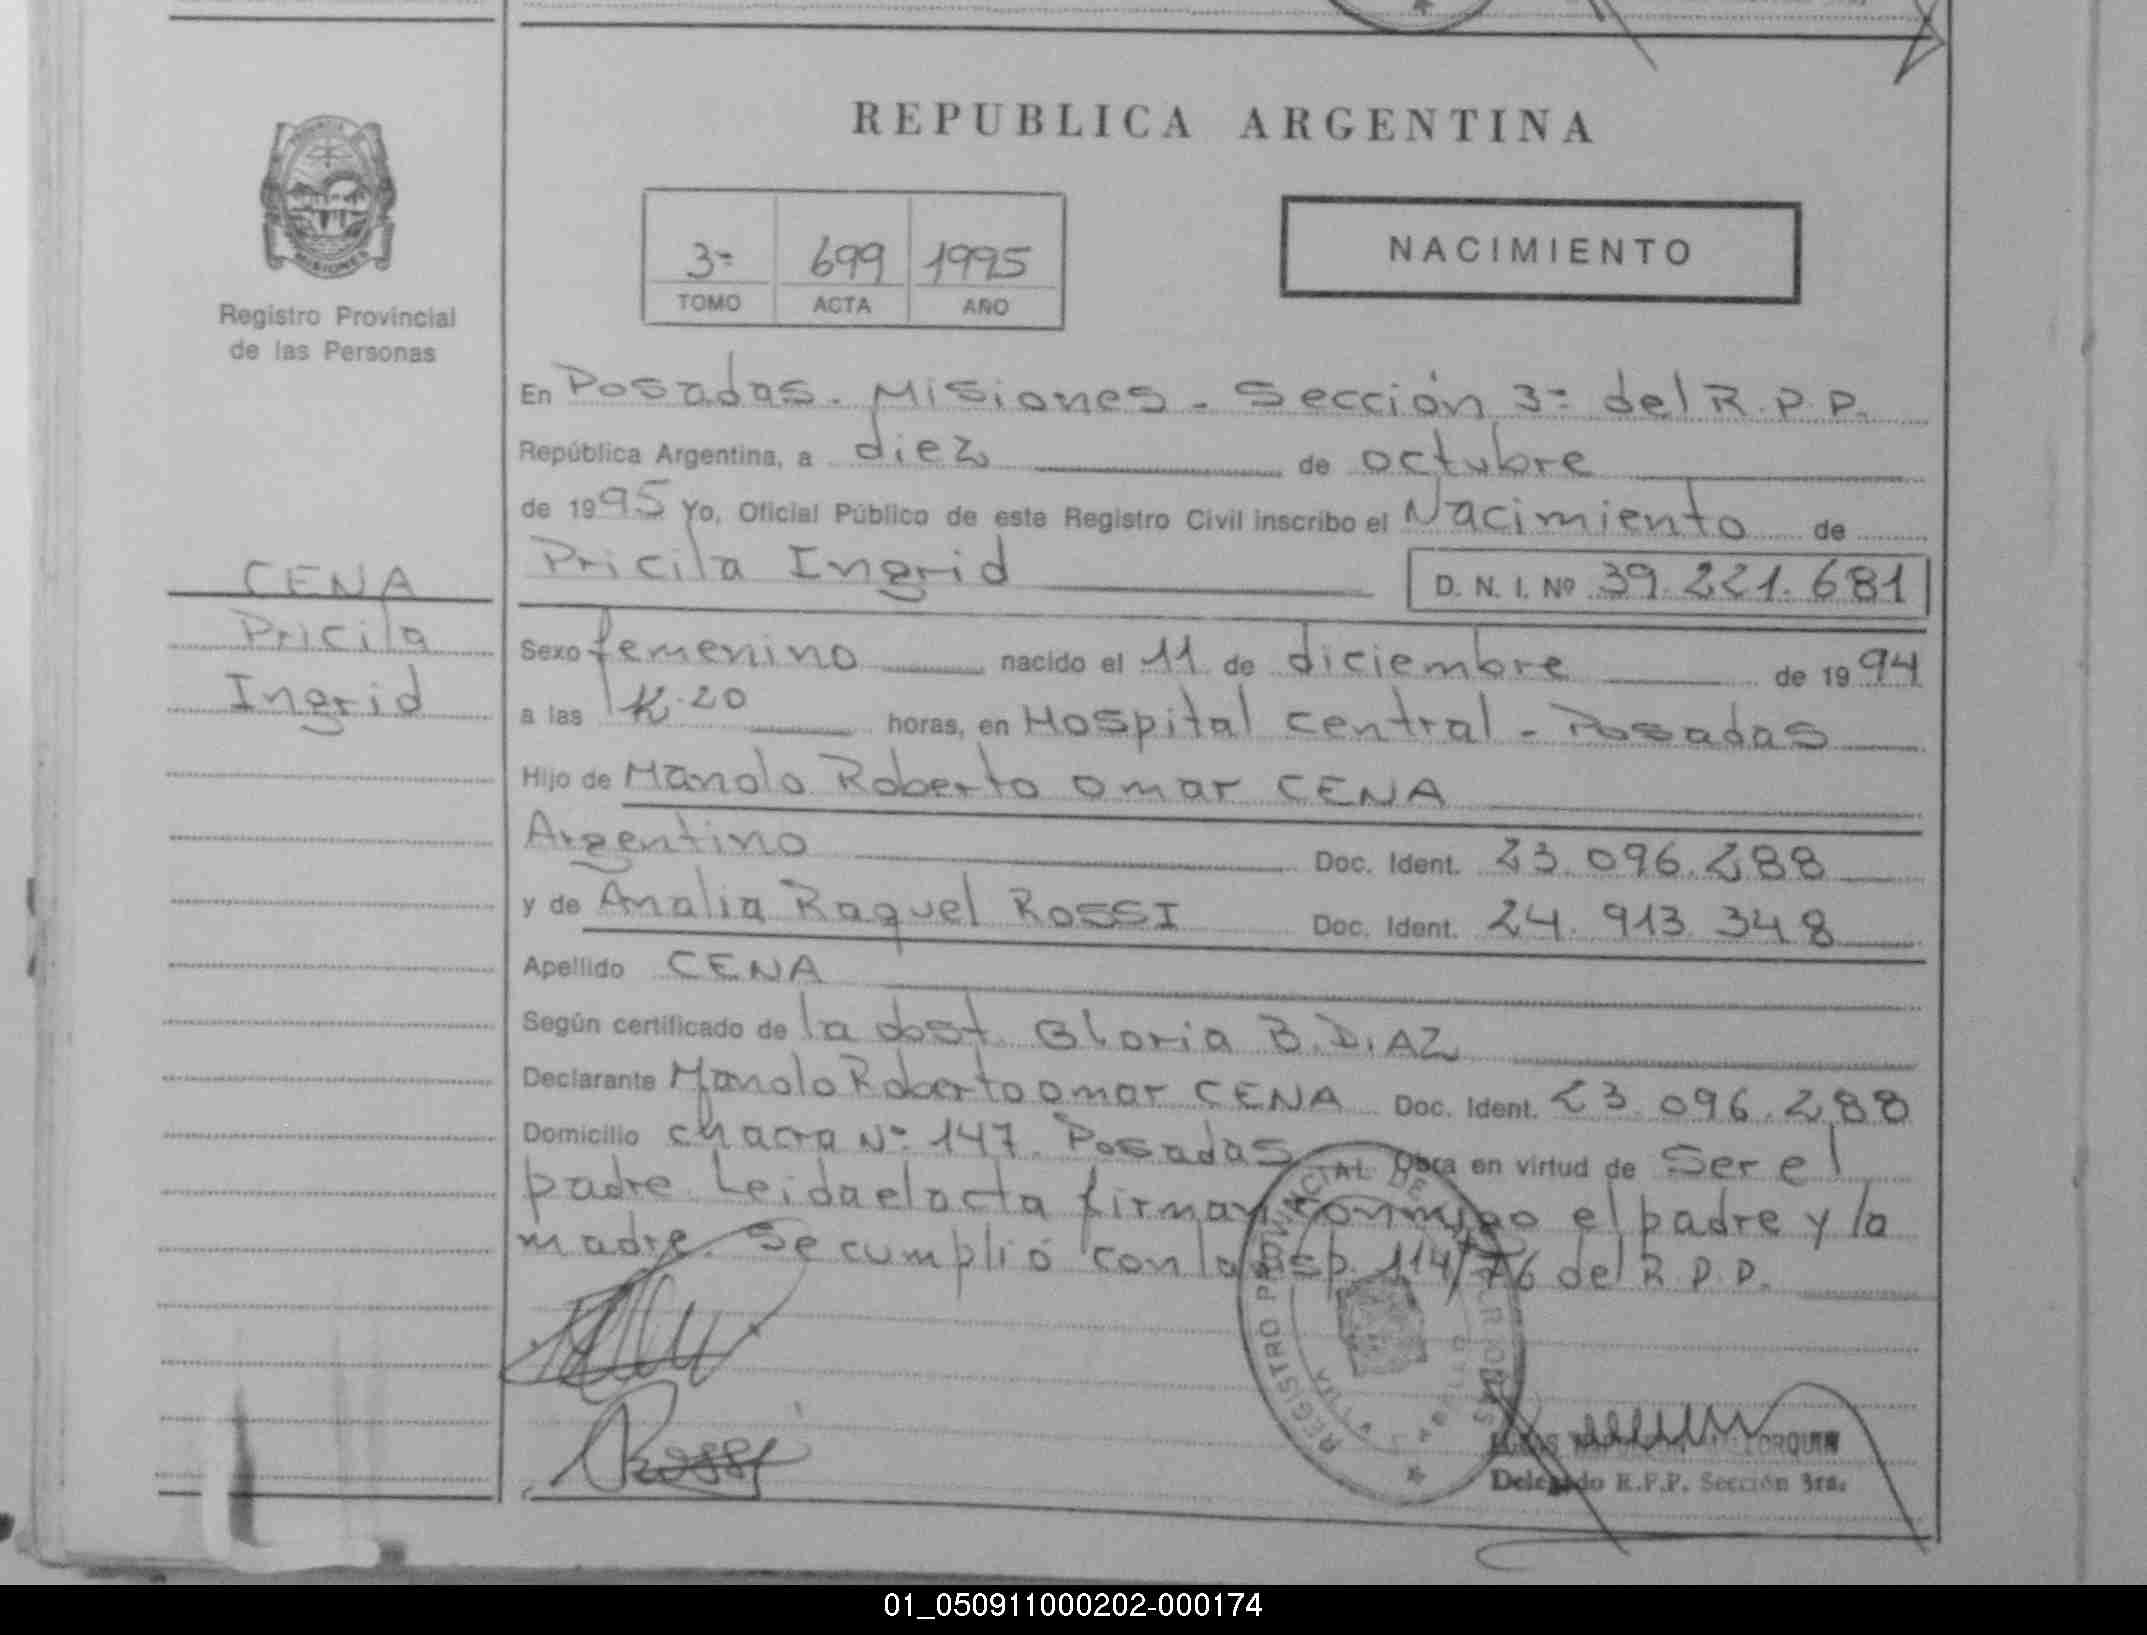 REPUBLICA ARGENTINA
MISIONES
Registro Provincial
de las Personas
3ª 699 1995
TOMO ACTA AÑO
NACIMIENTO
En Posadas. Misiones - Sección 3ª del R.P.P.
República Argentina, a diez de octubre
de 1995 Yo, Oficial Público de este Registro Civil inscribo el Nacimiento de
Pricila Ingrid D. N. I. Nº 39.221.681
CENA
Pricila
Ingrid
Sexo femenino nacido el 11 de diciembre de 1994
a las 20 horas, en Hospital central - Posadas
Hijo de Manolo Roberto Omar CENA
Argentino Doc. Ident. 23.096.288
y de Analia Raquel ROSSI Doc. Ident. 24.913.348
Apellido CENA
Según certificado de la obst. Gloria B. DIAZ
Declarante Manolo Roberto Omar CENA Doc. Ident. 23.096.288
Domicilio chacra Nº 147. Posadas Obra en virtud de Ser el
padre. Leida el acta firman conmigo el padre y la
madre. Se cumplió con la Disp. 114/76 del R.P.P.
REGISTRO PROVINCIAL DE LAS PERSONAS
Rossi
Delegado R.P.P. Sección 3ra.
01_050911000202-000174